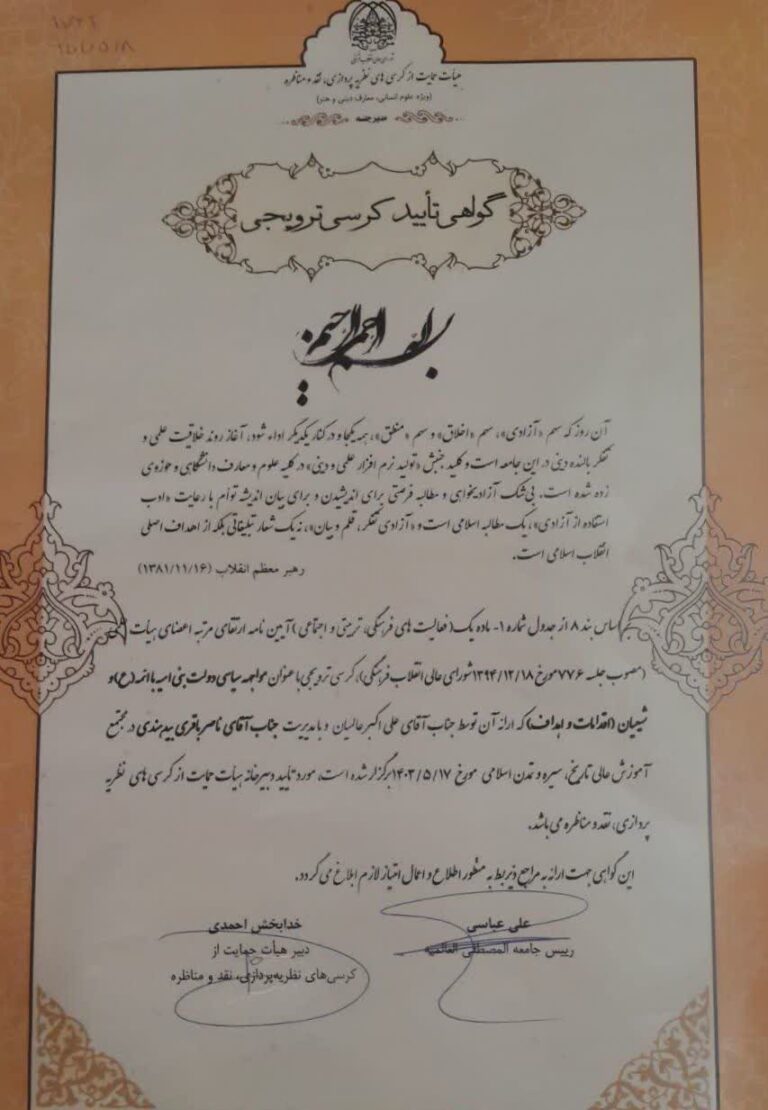 شورای عالی انقلاب فرهنگی
هیأت حمایت از کرسی های نظریه پردازی، نقد و مناظره
(ویژه علوم انسانی، معارف دینی و هنر)
مدیر جلسه
گواهی تأیید کرسی ترویجی
بسم الله الرحمن الرحیم
آن روز که سهم «آزادی»، سهم «اخلاق» و سهم «منطق»، همه یکجا و در کنار یکدیگر اداء شود، آغاز روند خلاقیت علمی و
تفکر بالنده دینی در این جامعه است و کلید جنبش «تولید نرم افزار علمی و دینی» در کلیه علوم و معارف دانشگاهی و حوزوی
زده شده است. بی‌شک آزادیخواهی و مطالبه فرصتی برای اندیشیدن و برای بیان اندیشه توأم با رعایت «ادب
استفاده از آزادی»، یک مطالبه اسلامی است و «آزادی تفکر، قلم و بیان»، نه یک شعار تبلیغاتی بلکه از اهداف اصلی
انقلاب اسلامی است.
رهبر معظم انقلاب (۱۳۸۱/۱۱/۱۶)
اساس بند ۸ از جدول شماره ۱- ماده یک (فعالیت های فرهنگی، تربیتی و اجتماعی) آیین نامه ارتقای مرتبه اعضای هیأت علمی
(مصوب جلسه ۷۷۶ مورخ ۱۳۹۴/۱۲/۱۸ شورای عالی انقلاب فرهنگی)، کرسی ترویجی با عنوان مواجهه سیاسی دولت بنی امیه با ائمه (ع) و
شیعیان (اقدامات و اهداف) که ارائه آن توسط جناب آقای علی اکبر عالمیان و با مدیریت جناب آقای ناصر باقری بیدهندی در مجتمع
آموزش عالی تاریخ، سیره و تمدن اسلامی مورخ ۱۴۰۳/۵/۱۷ برگزار شده است، مورد تأیید دبیرخانه هیأت حمایت از کرسی های نظریه
پردازی، نقد و مناظره می باشد.
این گواهی جهت ارائه به مراجع ذیربط به منظور اطلاع و اعمال امتیاز لازم ابلاغ می گردد.
علی عباسی
رییس جامعه المصطفی العالمیه
خدابخش احمدی
دبیر هیأت حمایت از
کرسی‌های نظریه‌پردازی، نقد و مناظره